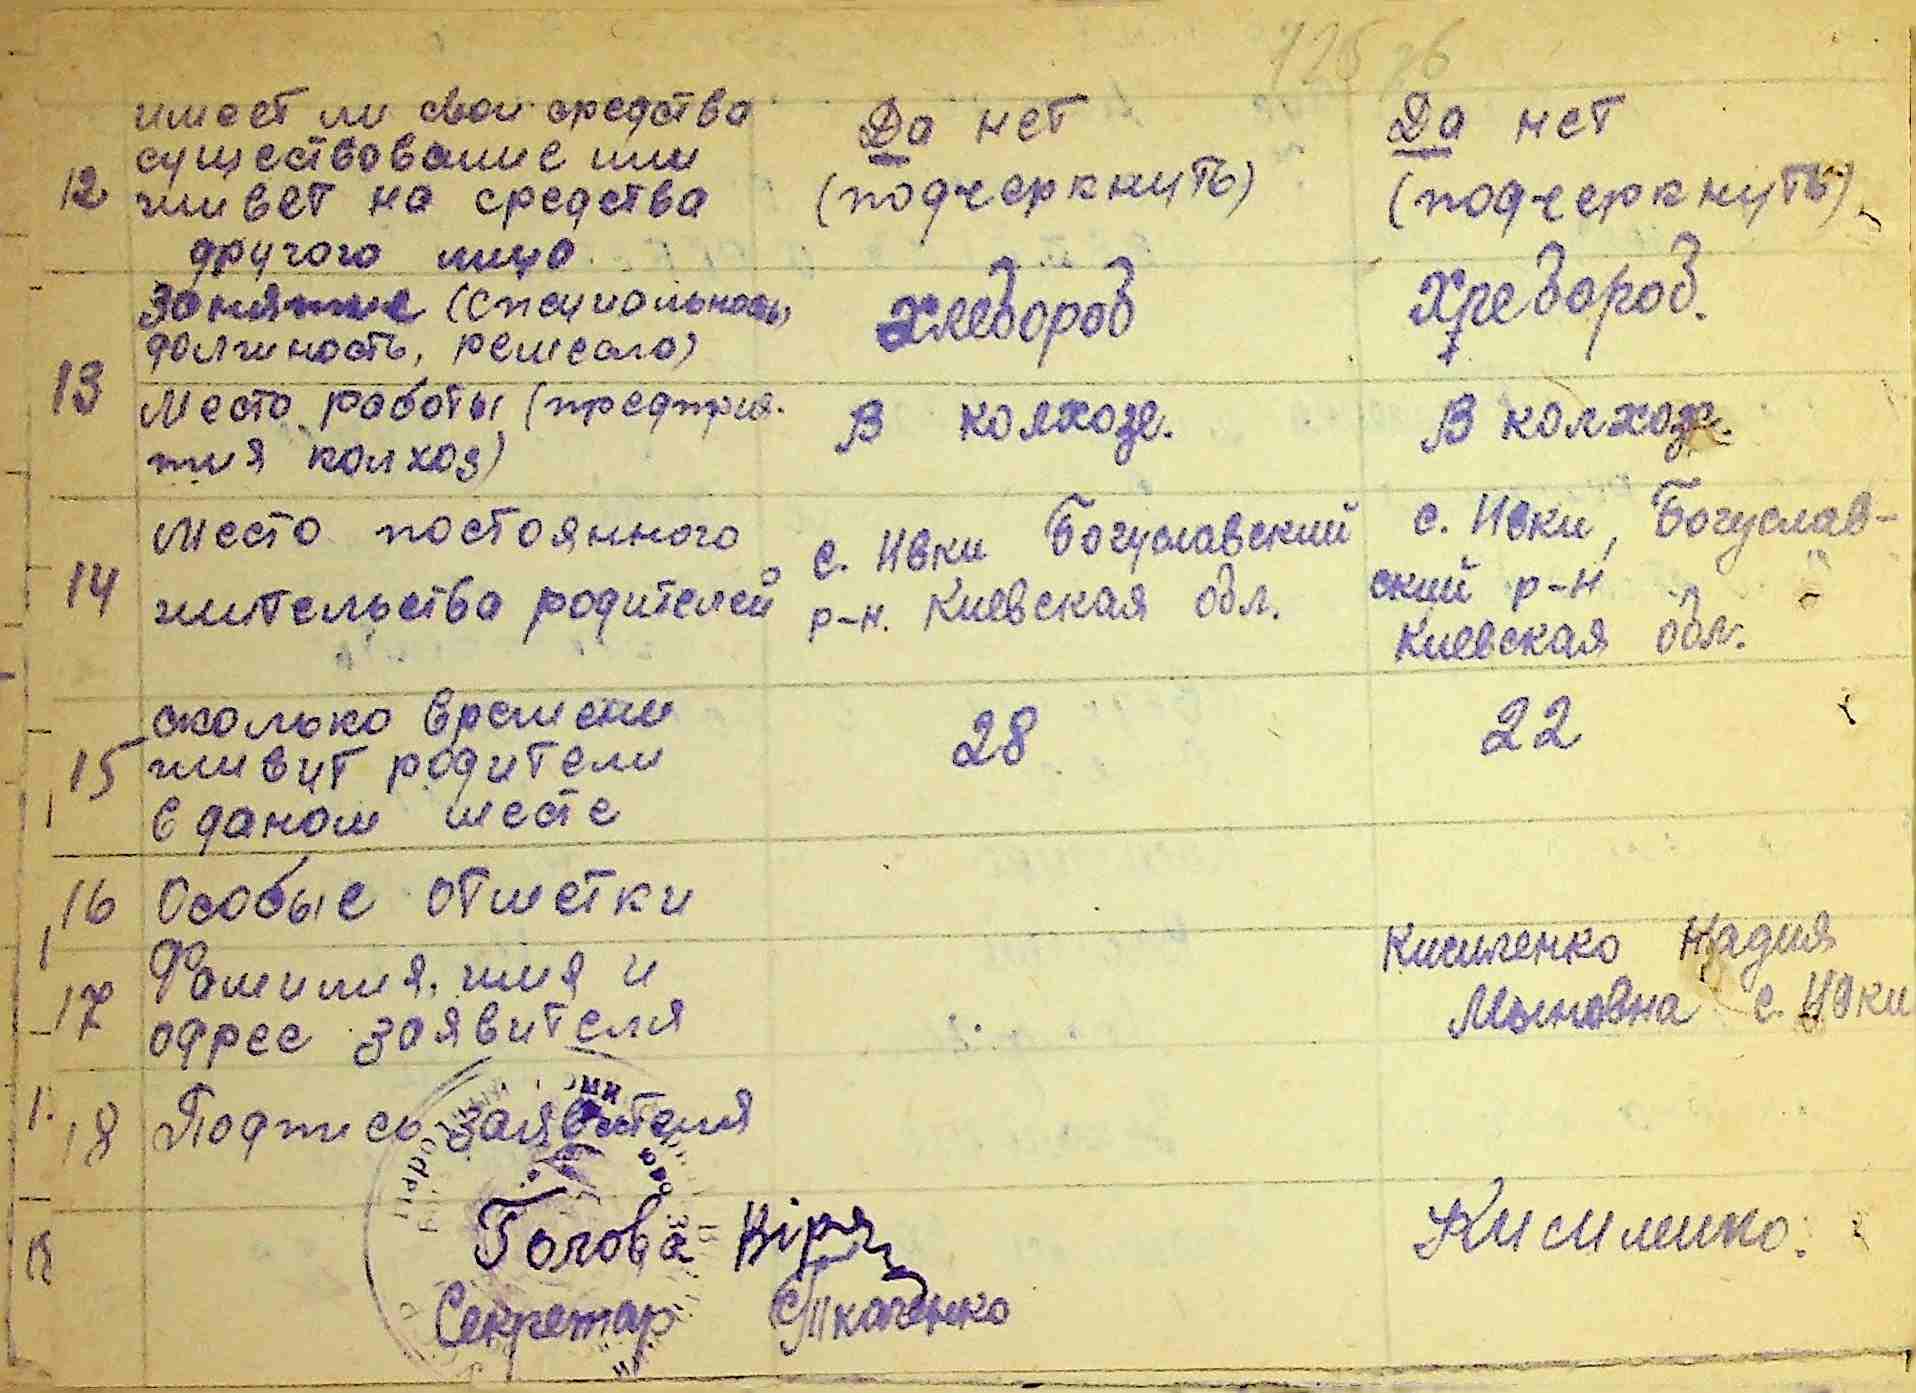 имеет ли свои средства
существование или
12 живет на средства
другого лица
Да нет
(подчеркнуть)
Да нет
(подчеркнуть)
13
Занятие (специальность,
должность, ремесло)
Хлебороб
Хлебороб.
Место работы (предприя-
тия колхоз)
В колхозе.
В колхозе.
14
Место постоянного
жительства родителей
с. Ивки Богуславский
р-н. Киевская обл.
с. Ивки, Богуслав-
ский р-н
Киевская обл.
сколько времени
15 живут родители
в даном месте
28
22
16 Особые отметки
17
Фамилия, имя и
адрес заявителя
Кисиленко Надия
с. Ивки
18 Подпись заявителя
Кисиленко.
Голова
Секретар Ткаченко